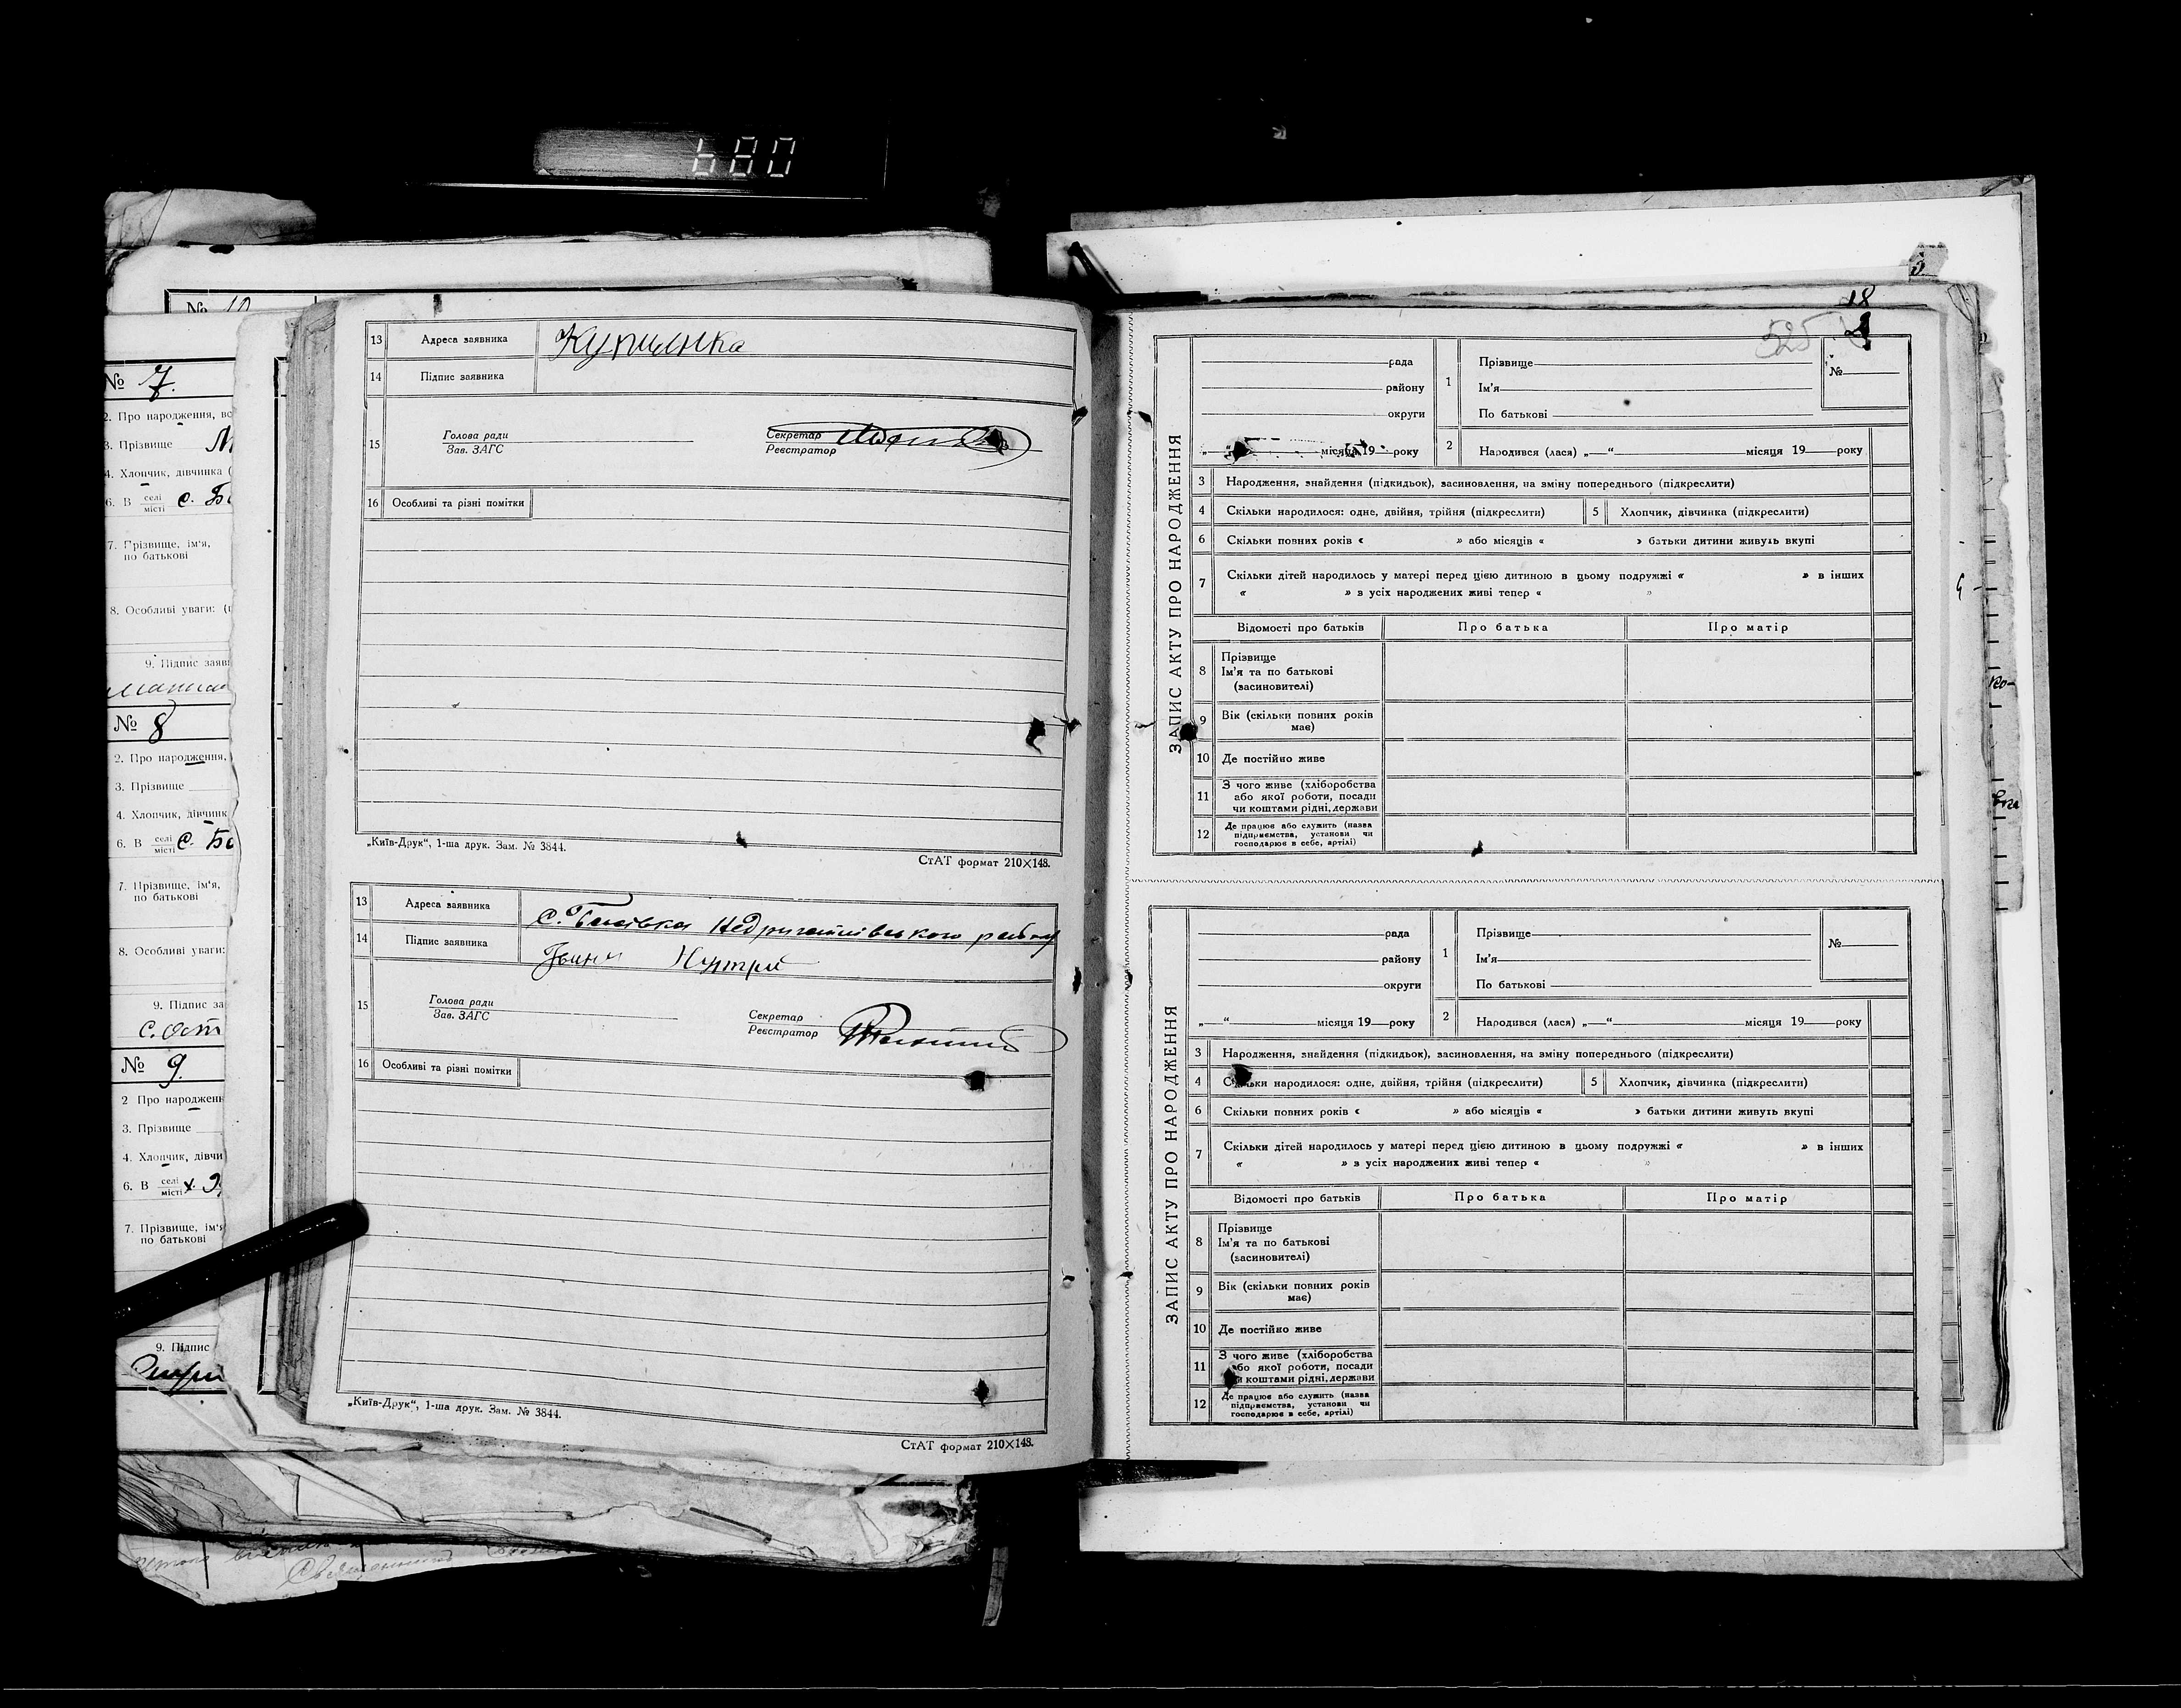 680
№ 10
№ 7.
2. Про народження, вс
3. Прізвище М
4. Хлопчик, дівчинка (
6. В селі місті с. Бо
7. Прізвище, ім'я,
по батькові
8. Особливі уваги: (п
9. Підпис заяв
№ 8
2. Про народження,
3. Прізвище
4. Хлопчик, дівчинк
6. В селі місті с. Бо
7. Прізвище, ім'я,
по батькові
8. Особливі уваги:
9. Підпис за
№ 9.
2 Про народжен
3. Прізвище
4. Хлопчик, дівчи
6. В селі місті х.
7. Прізвище, ім'я
по батькові
9. Підпис
13 Адреса заявника
14 Підпис заявника
15 Голова ради Секретар
Зав. ЗАГС Реєстратор
16 Особливі та різні помітки
„Київ-Друк“, 1-ша друк. Зам. № 3844.
СтАТ формат 210×148.
13 Адреса заявника с. Недригайлівського району
14 Підпис заявника
15 Голова ради Секретар
Зав. ЗАГС Реєстратор
16 Особливі та різні помітки
„Київ-Друк“, 1-ша друк. Зам. № 3844.
СтАТ формат 210×148.
18
525
ЗАПИС АКТУ ПРО НАРОДЖЕННЯ
рада 1 Прізвище №
району Ім'я
округи По батькові
„ “ місяця 19 року 2 Народився (лася) „ “ місяця 19 року
3 Народження, знайдення (підкидьок), засиновлення, на зміну попереднього (підкреслити)
4 Скільки народилося: одне, двійня, трійня (підкреслити) 5 Хлопчик, дівчинка (підкреслити)
6 Скільки повних років « » або місяців « » батьки дитини живуть вкупі
7 Скільки дітей народилось у матері перед цією дитиною в цьому подружжі « » в інших
« » з усіх народжених живі тепер « »
Відомості про батьків Про батька Про матір
8 Прізвище
Ім'я та по батькові
(засиновителі)
9 Вік (скільки повних років
має)
10 Де постійно живе
11 З чого живе (хліборобства
або якої роботи, посади
чи коштами рідні, держави
12 Де працює або служить (назва
підприємства, установи чи
господарює в себе, артілі)
ЗАПИС АКТУ ПРО НАРОДЖЕННЯ
рада 1 Прізвище №
району Ім'я
округи По батькові
„ “ місяця 19 року 2 Народився (лася) „ “ місяця 19 року
3 Народження, знайдення (підкидьок), засиновлення, на зміну попереднього (підкреслити)
4 Скільки народилося: одне, двійня, трійня (підкреслити) 5 Хлопчик, дівчинка (підкреслити)
6 Скільки повних років « » або місяців « » батьки дитини живуть вкупі
7 Скільки дітей народилось у матері перед цією дитиною в цьому подружжі « » в інших
« » з усіх народжених живі тепер « »
Відомості про батьків Про батька Про матір
8 Прізвище
Ім'я та по батькові
(засиновителі)
9 Вік (скільки повних років
має)
10 Де постійно живе
11 З чого живе (хліборобства
або якої роботи, посади
чи коштами рідні, держави
12 Де працює або служить (назва
підприємства, установи чи
господарює в себе, артілі)